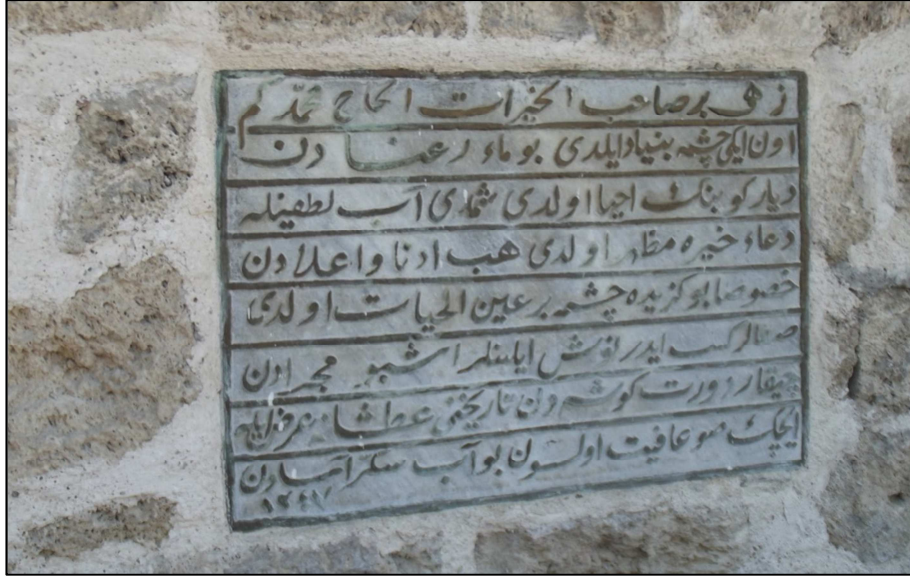 زهی بر صاحب الخیرات الحاج محمد کم
اون ایکی چشمه بنیاد ایلدی بو ماء رعنا دن
دیار کوینک احیا اولدی شمدی آب لطفیله
دعاء خیره مظهر اولدی هب ادنا واعلادن
خصوصا بو کزیده چشمه بر عین الحیات اولدی
صفالر کسب ایدر نوش ایلینلر اشبو مجرادن
چیقار دورت کوشه دن تاریخنی عطشانه عرض ایله
ایچک صو عافیت اولسون بو آب سکر آسادن